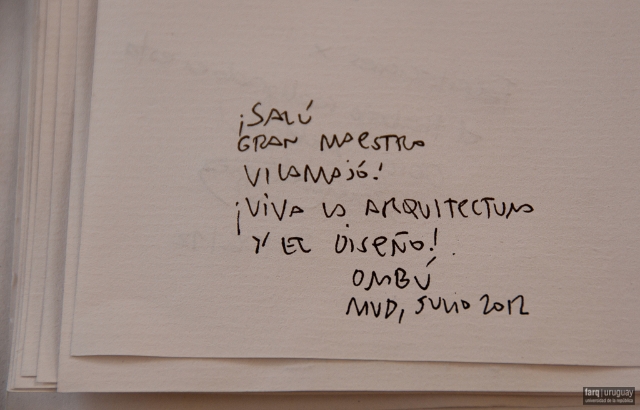 ¡SALÚ
GRAN MAESTRO
VILAMAJÓ!
¡VIVA LA ARQUITECTURA
Y EL DISEÑO!
OMBÚ
MVD, JULIO 2012
farq|uruguay
universidad de la república